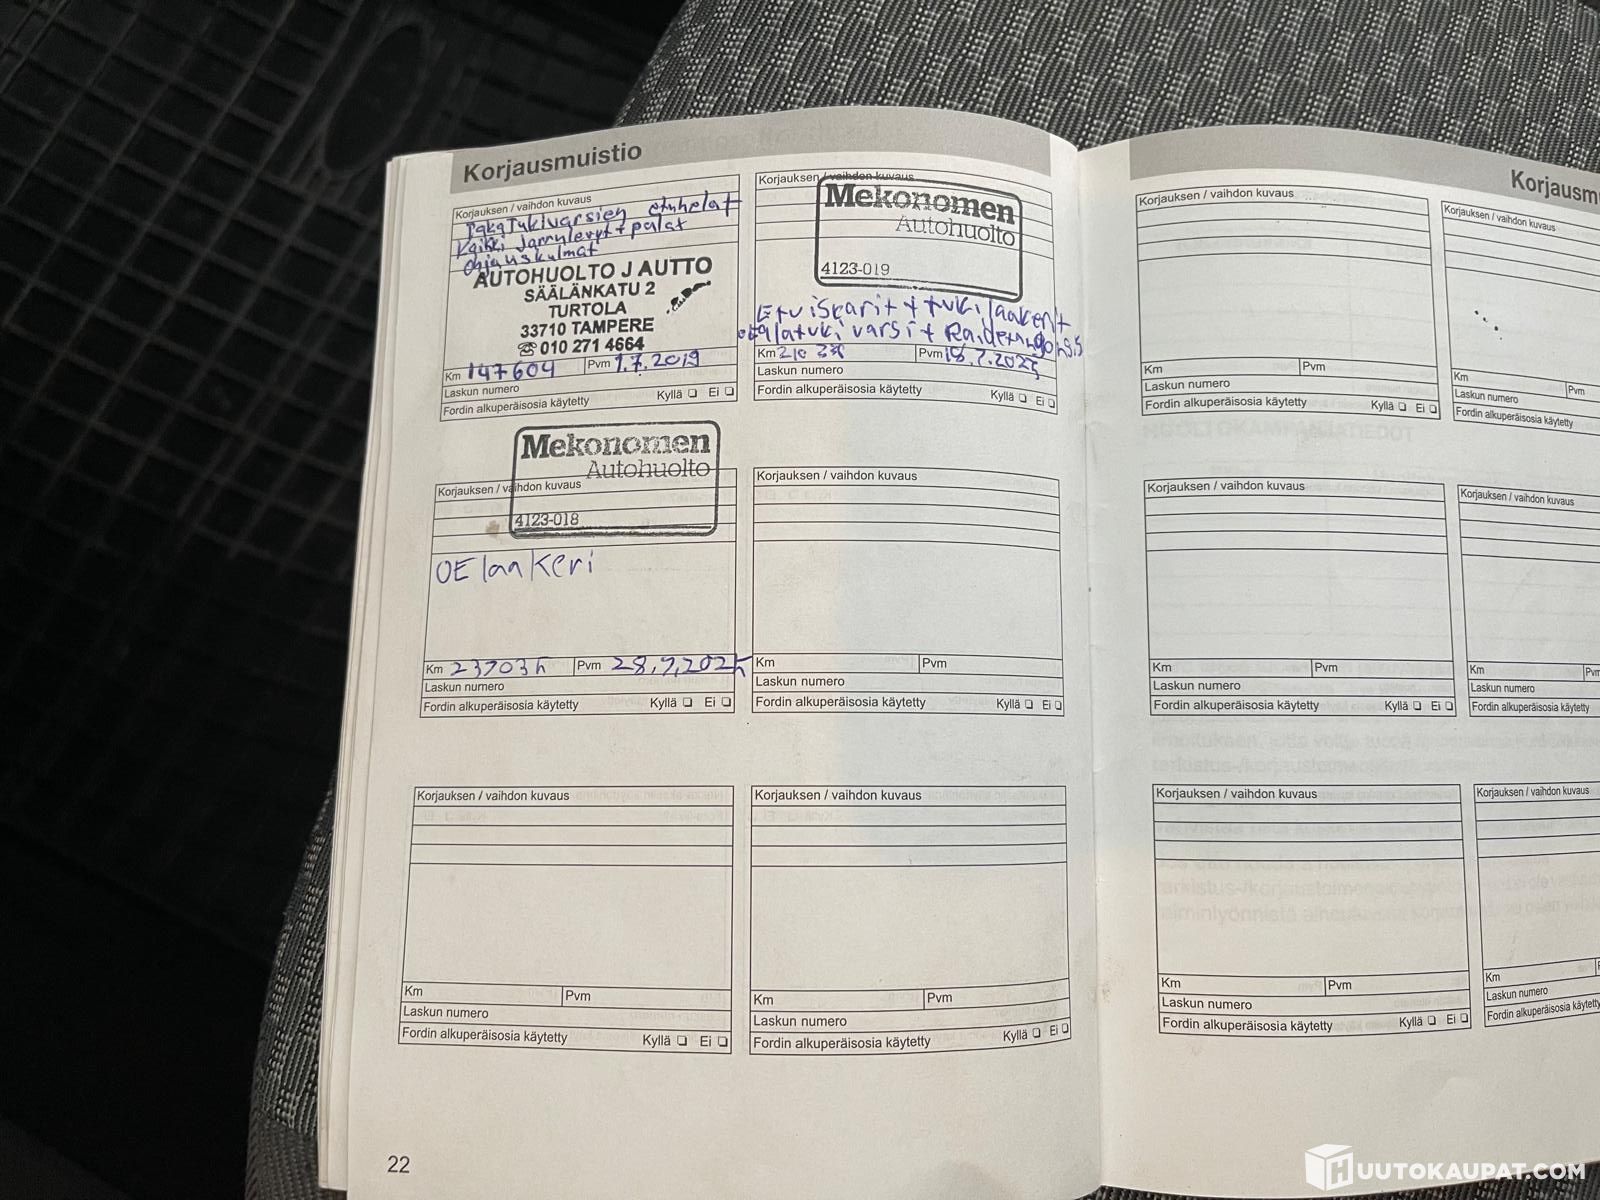 Korjausmuistio
Korjauksen / vaihdon kuvaus
Takatukivarsien etuhelat
Kaikki Jarrulevyt + palat
ohjauskulmat
AUTOHUOLTO J AUTTO
SÄÄLÄNKATU 2
TURTOLA
33710 TAMPERE
☎ 010 271 4664
Km 147604 Pvm 1.7.2019
Laskun numero
Fordin alkuperäisosia käytetty Kyllä ❏ Ei ❏
Korjauksen / vaihdon kuvaus
Mekonomen
Autohuolto
4123-019
Etuiskarit + tukilaakerit
alatukivarsi + Raidetangon
Km 210 Pvm 18.7.2025
Laskun numero
Fordin alkuperäisosia käytetty Kyllä ❏ Ei ❏
Mekonomen
Autohuolto
Korjauksen / vaihdon kuvaus
4123-018
OE laakeri
Km 23703 Pvm 28.7.2025
Laskun numero
Fordin alkuperäisosia käytetty Kyllä ❏ Ei ❏
Korjauksen / vaihdon kuvaus
Km Pvm
Laskun numero
Fordin alkuperäisosia käytetty Kyllä ❏ Ei ❏
Korjauksen / vaihdon kuvaus
Km Pvm
Laskun numero
Fordin alkuperäisosia käytetty Kyllä ❏ Ei ❏
Korjauksen / vaihdon kuvaus
Km Pvm
Laskun numero
Fordin alkuperäisosia käytetty Kyllä ❏ Ei ❏
22
Korjausm
Korjauksen / vaihdon kuvaus
Km Pvm
Laskun numero
Fordin alkuperäisosia käytetty Kyllä ❏ Ei ❏
Korjauksen / vaihdon kuvaus
Km Pvm
Laskun numero
Fordin alkuperäisosia käytetty
Korjauksen / vaihdon kuvaus
Km Pvm
Laskun numero
Fordin alkuperäisosia käytetty Kyllä ❏ Ei ❏
Korjauksen / vaihdon kuvaus
Km Pvm
Laskun numero
Fordin alkuperäisosia käytetty
Korjauksen / vaihdon kuvaus
Km Pvm
Laskun numero
Fordin alkuperäisosia käytetty Kyllä ❏ Ei ❏
Korjauksen / vaihdon kuvaus
Km
Laskun numero
Fordin alkuperäisosia käytetty
HUUTOKAUPAT.COM